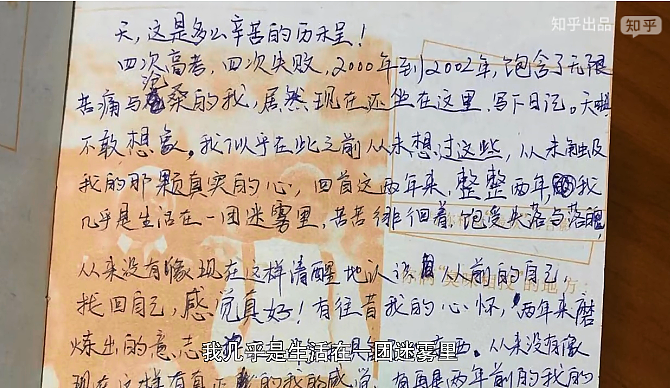 知乎出品 知乎
天,这是多么辛苦的历程!
四次高考,四次失败,2000年到2002年,饱含了无限
苦痛与沧桑的我,居然现在还坐在这里,写下日记。天啊
不敢想象。我似乎在此之前从未想过这些,从未触及
我的那颗真实的心,回首这两年来,整整两年,我
几乎是生活在一团迷雾里,苦苦徘徊着,饱受失落与落魄,
从来没有像现在这样清醒地认识从前的自己,
找回自己,感觉真好!有往昔我的心怀,两年来磨
炼出的意志
从来没有像
我几乎是生活在一团迷雾里
现在这样有真正的我的感觉,有两年前的我的